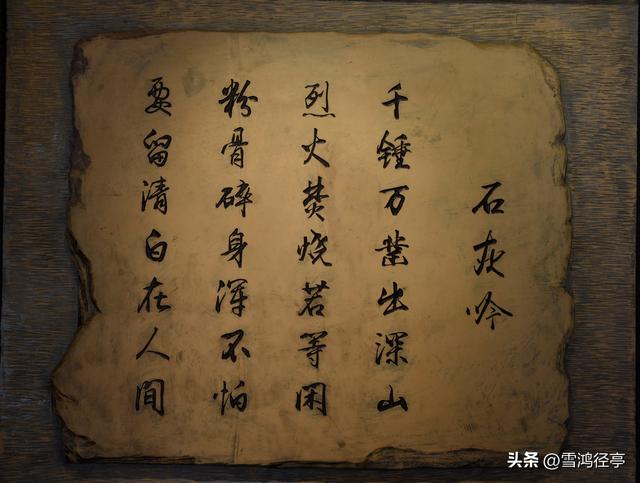 石灰吟
千锤万业出深山
烈火焚烧若等闲
粉骨碎身浑不怕
要留清白在人间
头条 @雪鸿径亭